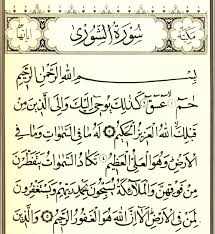 مكية سُورَةُ الشُّورَىٰ آياتها
بِسْمِ اللَّهِ الرَّحْمَٰنِ الرَّحِيمِ
حمٓ ۝ عٓسٓقٓ ۝ كَذَٰلِكَ يُوحِىٓ إِلَيْكَ وَإِلَى الَّذِينَ مِن
قَبْلِكَ اللَّهُ الْعَزِيزُ الْحَكِيمُ ۝ لَهُۥ مَا فِى السَّمَٰوَٰتِ وَمَا فِى
الْأَرْضِ وَهُوَ الْعَلِىُّ الْعَظِيمُ ۝ تَكَادُ السَّمَٰوَٰتُ يَتَفَطَّرْنَ
مِن فَوْقِهِنَّ وَالْمَلَٰٓئِكَةُ يُسَبِّحُونَ بِحَمْدِ رَبِّهِمْ وَيَسْتَغْفِرُونَ
لِمَن فِى الْأَرْضِ أَلَآ إِنَّ اللَّهَ هُوَ الْغَفُورُ الرَّحِيمُ ۝ وَالَّذِينَ